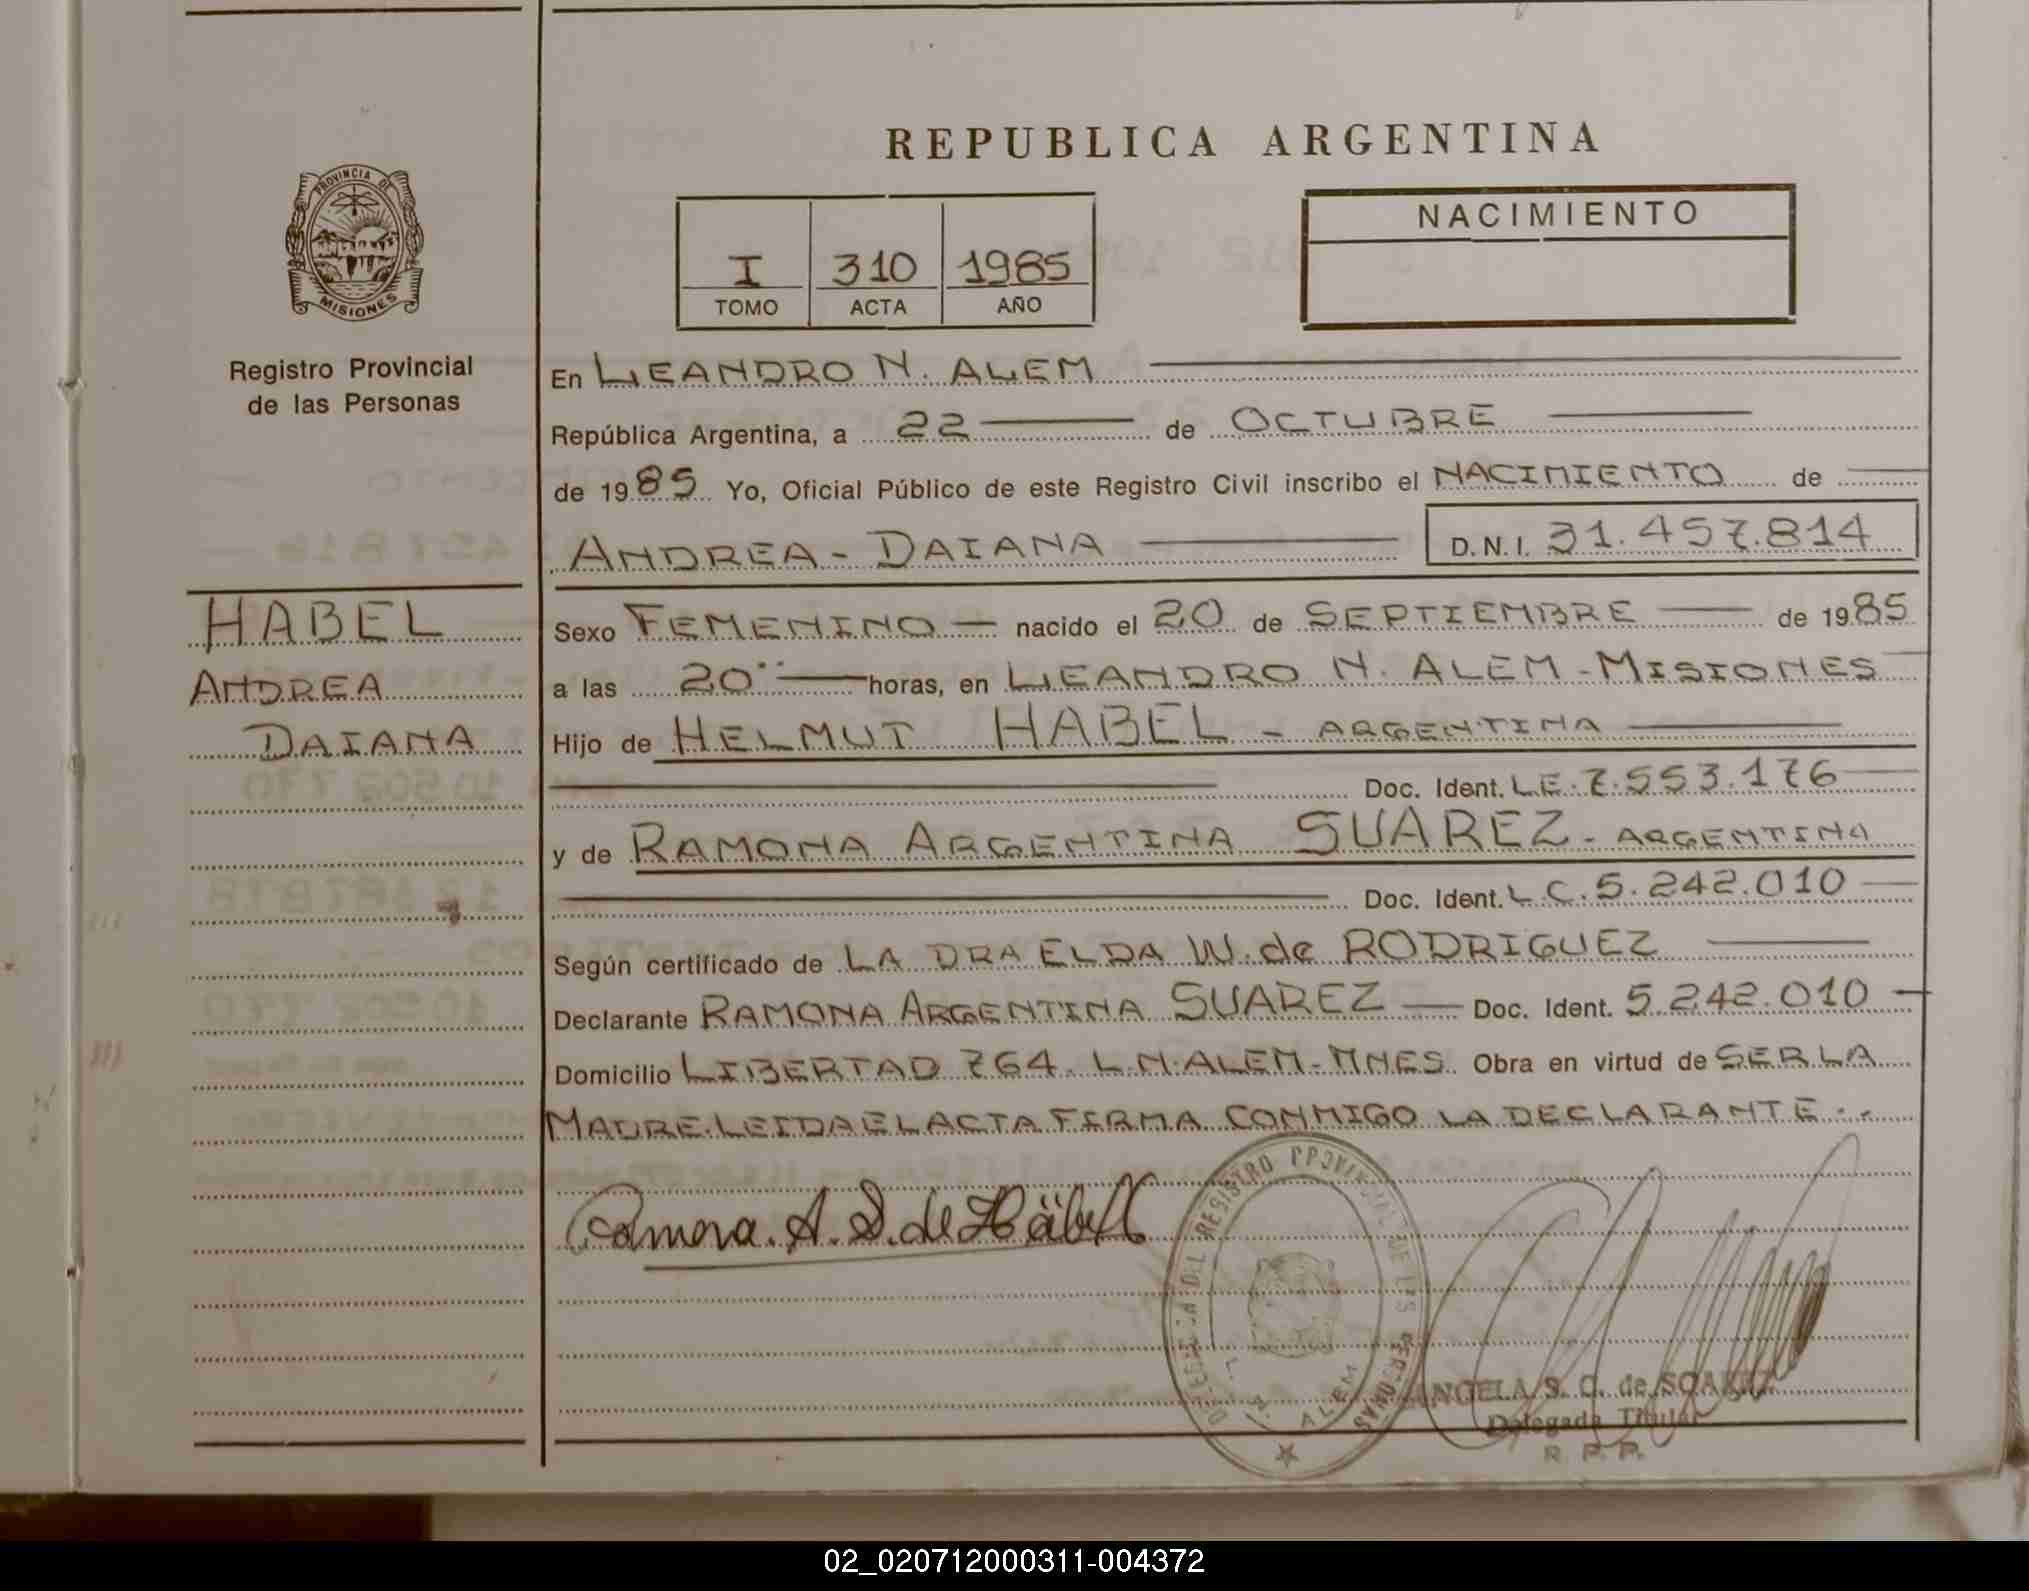 REPUBLICA ARGENTINA
PROVINCIA DE
MISIONES
Registro Provincial
de las Personas
I 310 1985
TOMO ACTA AÑO
NACIMIENTO
En LEANDRO N. ALEM
República Argentina, a 22 de OCTUBRE
de 1985 Yo, Oficial Público de este Registro Civil inscribo el NACIMIENTO de
ANDREA - DAIANA D.N.I. 31.457.814
HABEL
ANDREA
DAIANA
Sexo FEMENINO nacido el 20 de SEPTIEMBRE de 1985
a las 20 horas, en LEANDRO N. ALEM - MISIONES
Hijo de HELMUT HABEL - ARGENTINA
Doc. Ident. L.E. 7.553.176
y de RAMONA ARGENTINA SUAREZ - ARGENTINA
Doc. Ident. L.C. 5.242.010
Según certificado de LA DRA ELDA W. de RODRIGUEZ
Declarante RAMONA ARGENTINA SUAREZ Doc. Ident. 5.242.010
Domicilio LIBERTAD 764. L.N.ALEM-MNES. Obra en virtud de SER LA
MADRE.LEIDA EL ACTA FIRMA CONMIGO LA DECLARANTE.-
Ramona. A. S. de Häbel
DELEGACIA DEL REGISTRO PROVINCIAL DE LAS PERSONAS
L. N. ALEM
ANGELA S. C. de SOAREZ
Delegada Titular
R. P. P.
02_020712000311-004372